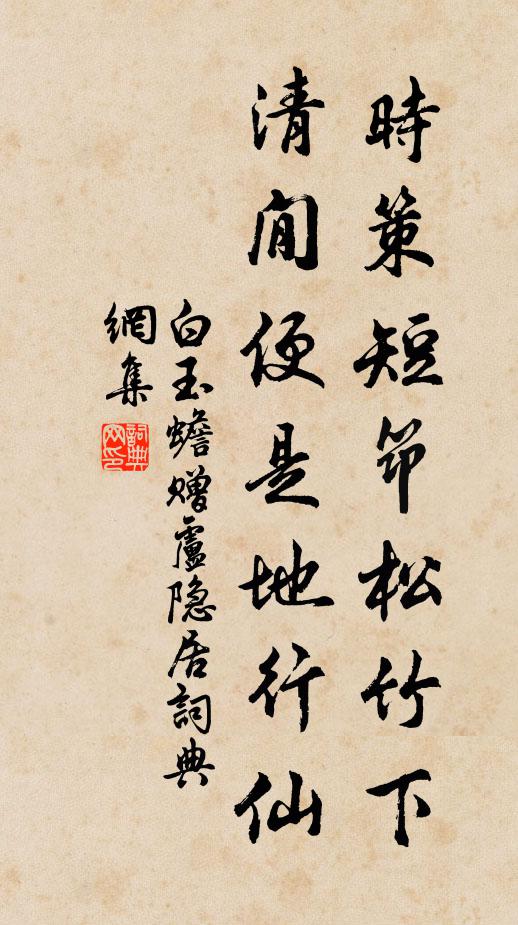 時策短筇松竹下
清閒便是地行仙
白玉蟾贈廬隱居詞典
網集
詞典
网印